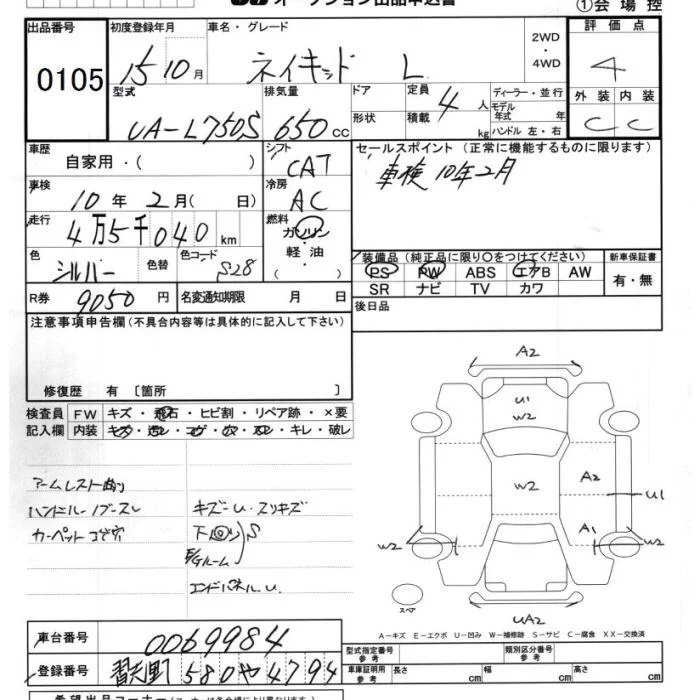 オークション出品申込書
①会場控
出品番号 初度登録年月 車名・グレード 2WD ・ 4WD 評価点
0105 15 10月 ネイキッド L 4
型式 排気量 ドア 定員 4 人 ディーラー・並行 外装 内装
UA-L750S 650 cc 形状 積載 kg モデル年式 年 ハンドル 左・右 C C
車歴 自家用・( ) シフト CAT セールスポイント (正常に機能するものに限ります)
車検 10年2月
車検 10年 2月( 日) 冷房 AC
走行 4万5千040 km 燃料 ガソリン ・ 軽油 ( )
色 シルバー 色替 色コード S28
装備品 (純正品に限り〇をつけてください) 新車保証書
PS PW ABS エアB AW 有・無
SR ナビ TV カワ
R券 9050 円 名変通知期限 月 日 後日品
注意事項申告欄 (不具合内容等は具体的に記入して下さい)
修復歴 有 〔箇所 〕
検査員 FW キズ・飛石・ヒビ割・リペア跡・×要
記入欄 内装 キズ・汚レ・コゲ・穴・スレ・キレ・破レ
アームレスト曲り
ハンドル-ノブ-スレ
カーペットコゲ穴
キズ-U.スリキズ
下回り S
E/Gルーム
エンドパネル.U.
A2
U1
W2
W2
A2
U1
A1
W2
W2
スペア
UA2
A-キズ E-エクボ U-凹み W-補修跡 S-サビ C-腐食 XX-交換済
車台番号 0069984
登録番号 習志野 580 や 4794
型式指定番号 参考 類別区分番号 参考
車庫証明用 参考 長さ cm 幅 cm 高さ cm
希望出品コーナー